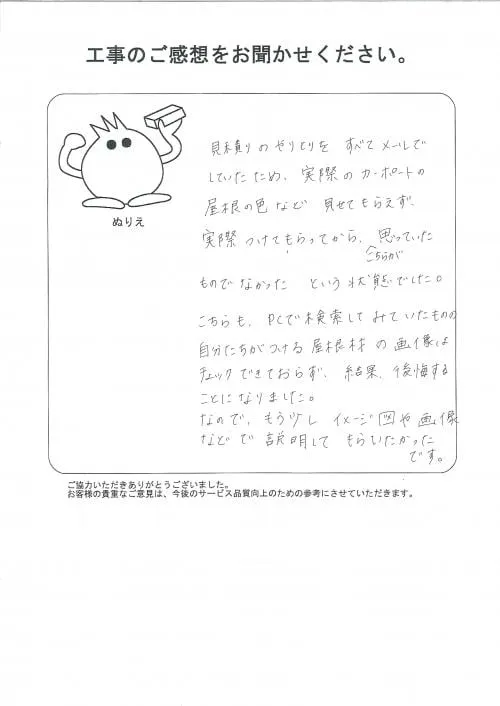 工事のご感想をお聞かせください。
ぬりえ
見積りのやりとりを すべてメールで
していたため、実際のカーポートの
屋根の色など 見せてもらえず、
実際つけてもらってから、思っていた
こちらが
ものでなかった という状態でした。
こちらも、PCで検索してみていたものの
自分たちがつける屋根材の画像は
チェックできておらず、結果、後悔する
ことになりました。
なので、もう少し イメージ図や画像
などで説明して もらいたかった
です。
ご協力いただきありがとうございました。
お客様の貴重なご意見は、今後のサービス品質向上のための参考にさせていただきます。